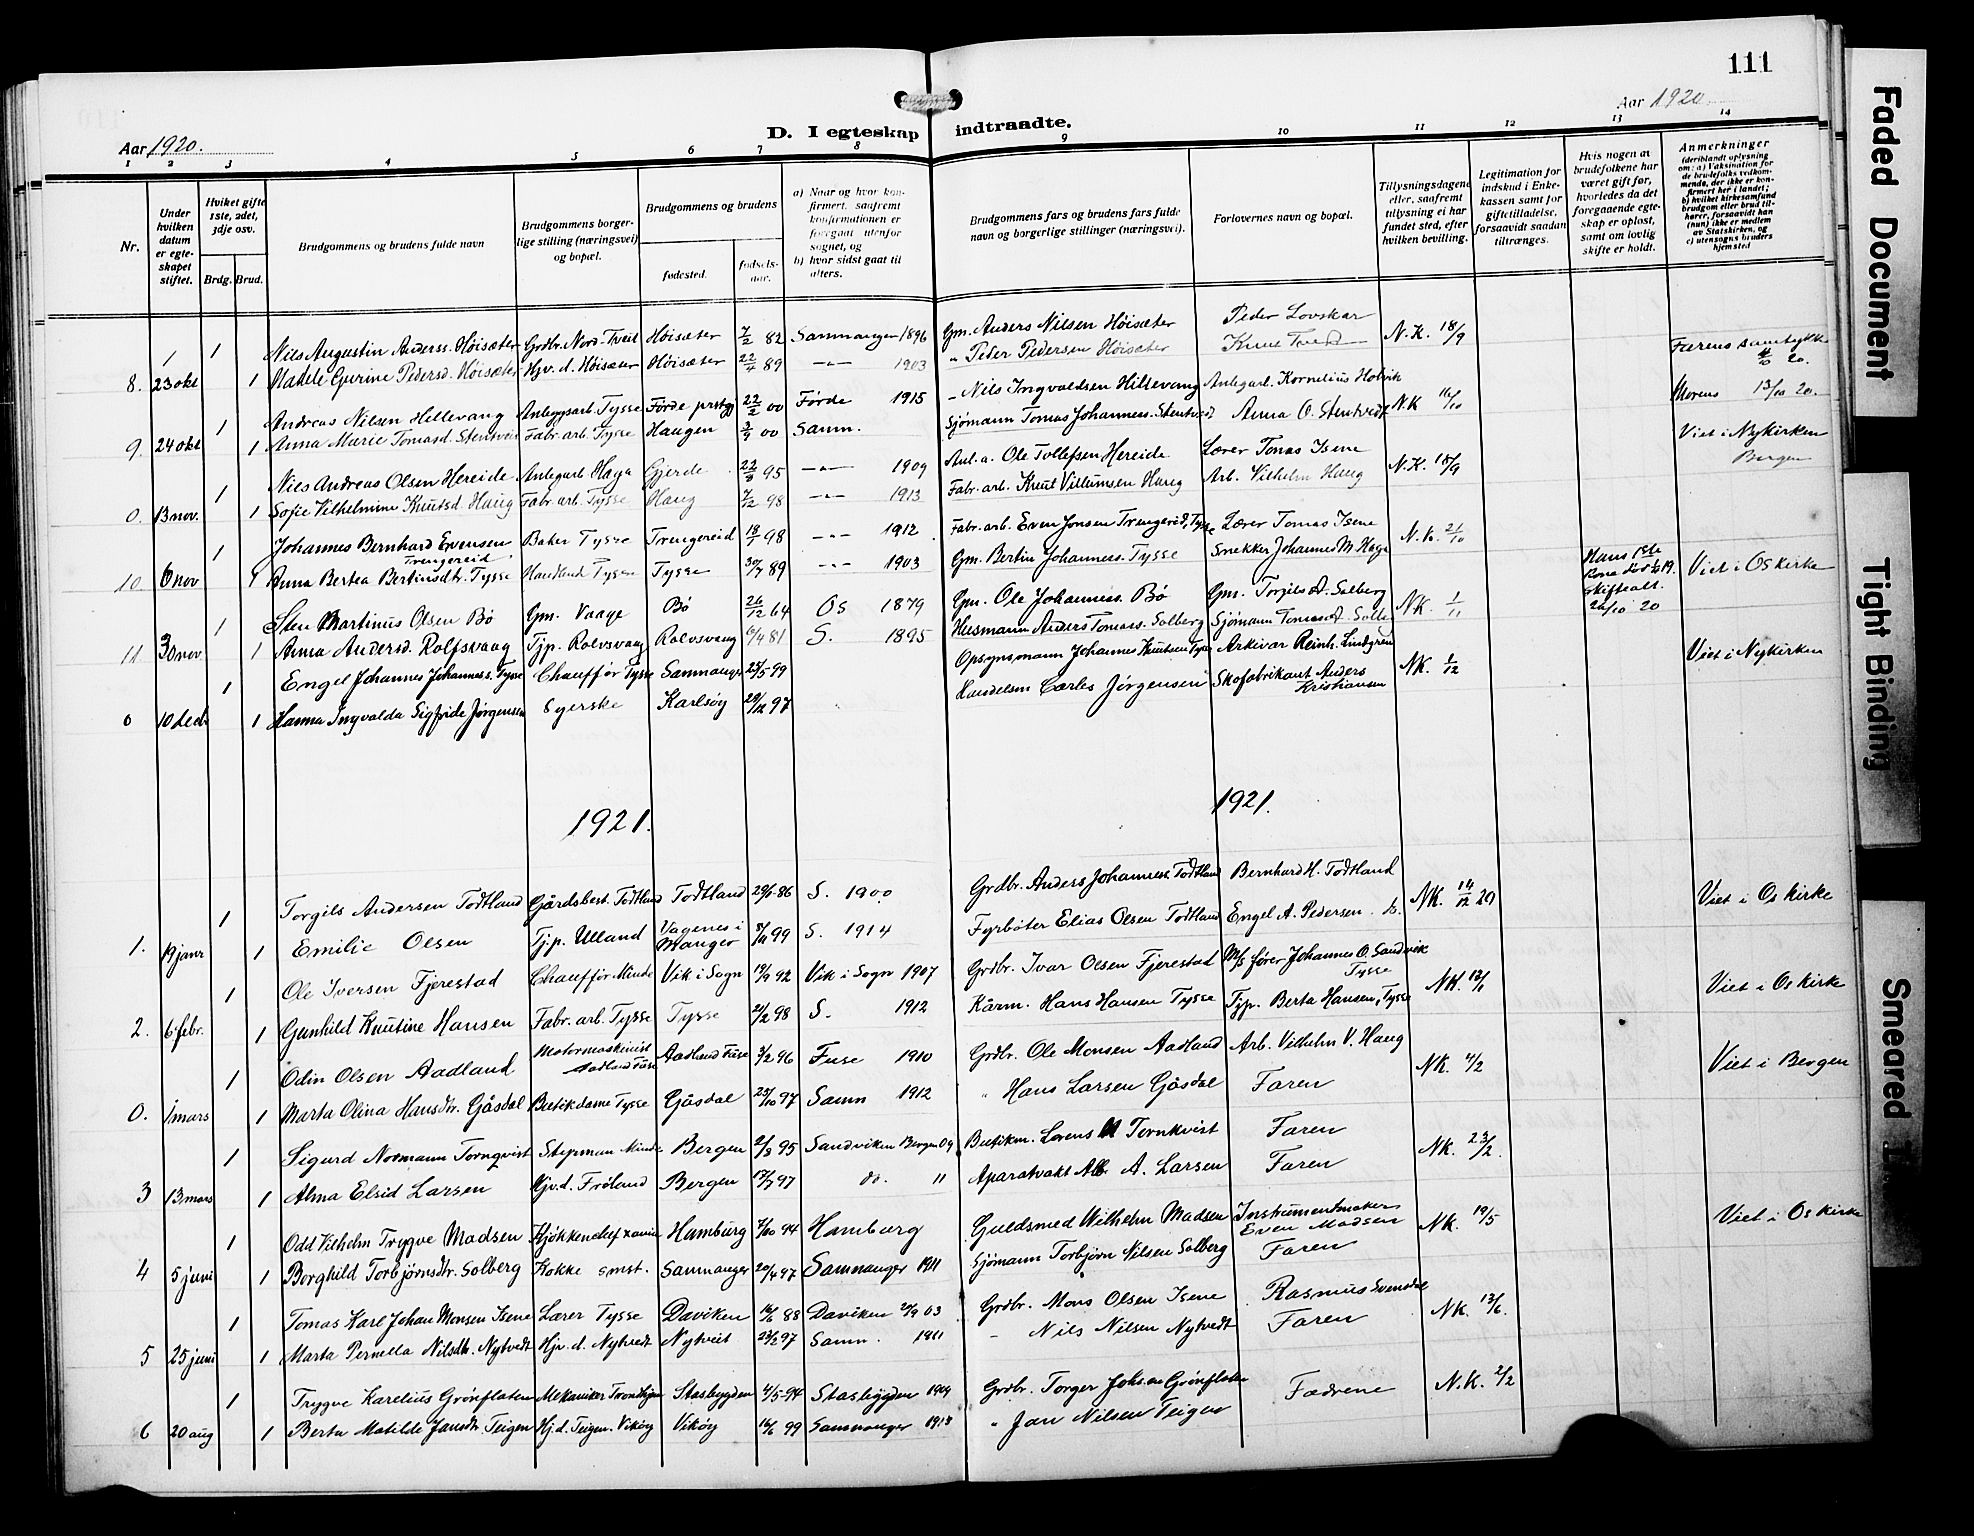 111
Aar 1920.
D. I egteskap indtraadte.
Aar 1920
1 2 3 4 5 6 7 8 9 10 11 12 13 14
Nr.
Under hvilken datum er egteskapet stiftet.
Hviket gifte 1ste, 2det, 3dje osv.
Brdg. Brud.
Brudgommens og brudens fulde navn
Brudgommens borgerlige stilling (næringsvei) og bopæl.
Brudgommens og brudens
fødested.
fødselsaar.
a) Naar og hvor konfirmert, saafremt konfirmationen er foregaat utenfor sognet, og
b) hvor sidst gaat til alters.
Brudgommens fars og brudens fars fulde navn og borgerlige stillinger (næringsvei).
Forlovernes navn og bopæl.
Tillysningsdagene eller, saafremt tillysning ei har fundet sted, efter hvilken bevilling.
Legitimation for indskud i Enkekassen samt for giftetilladelse, forsaavidt saadan tiltrænges.
Hvis nogen av brudefolkene har været gift før, hvorledes da det foregaaende egteskap er opløst, samt om lovlig skifte er holdt.
Anmerkninger
(deriblandt oplysning om: a) Vaksination for de brudefolks vedkommende, der ikke er konfirmert her i landet; b) hvilket kirkesamfund brudgom eller brud tilhører, forsaavidt han (hun) ikke er medlem av Statskirken, og c) utensogns bruders hjemsted
1 Nils Augustin Anderss. Høisæter Grdbr. Nord-Tveit Høisæter 7/2 82 Samnanger 1896 Gm. Anders Nilsen Høisæter Peder Lovskar N.K. 18/9
8. 23 okt 1 Madele Gurine Pedersd. Høisæter Hjv. d. Høisæter Høisæter 22/4 89 —"— 1903 " Peder Pedersen Høisæter Knut Tveit Farens samtykke 20.
1 Andreas Nilsen Hillevang Anleggsarb. Tysse Førde prstgj 22/2 00 Førde 1915 — Nils Ingvaldsen Hillevang Anlegarb. Kornelius Holvik N.K 16/10 Morens 13/10 20.
9. 24 okt 1 Anna Marie Tomasd. Stentveit Fabr. arb. Tysse Haugen 3/9 00 Samn. Sjømann Tomas Johanness. Stentveit Anna O. Stentvedt
1 Nils Andreas Olsen Hereide Anlegarb Haga Gjerde 22/3 95 —"— 1909 Anl. a. Ole Tollefsen Hereide Lærer Tomas Isene N.K. 18/9 Viet i Nykirken Bergen
0. 13 nov. 1 Sofie Vilhelmine Knutsd. Haug Fabr. arb. Tysse Haug 7/12 98 —"— 1913 Fabr. arb. Knut Villumsen Haug Arb. Vilhelm Haug
1 Johannes Bernhard Evensen Trengereid Baker Tysse Trengereid 18/1 98 —"— 1912 Fabr. arb. Even Jonsen Trengereid, Tysse Lærer Tomas Isene N.K. 21/10
10. 6 nov 1 Anna Bertea Bertinsdtr. Tysse Tysse 30/7 89 —"— 1903 Gm. Bertin Johanness. Tysse Snekker Johannes M. Haga
1 Sten Martinus Olsen Bø Gm. Vaage Bø 26/12 64 Os 1879 Gm. Ole Johanness. Bø Gm. Torgils A. Solberg NK. 1/11 Hans 1ste Kona død 19. Skifteatt. 26/10 20 Viet i Os kirke
11. 30 nov. 1 Anna Andersd. Rolfsvaag Tjp. Rolvsvaag Rolvsvaag 6/4 81 S. 1895 Husmann Anders Tomass. Solberg Sjømann Tomas A. Solb.
1 Engel Johannes Johanness. Tysse Chauffør Tysse Samnanger 25/5 99 Opsynsmann Johannes Knutsen Tysse Arkivar Reinh. Lindgren NK. 1/12 Viet i Nykirken
0 10 decb 1 Hanna Ingvalda Sigfride Jørgensen Syerske Karlsøy 28/12 97 Handelsm Carles Jørgensen Skofabrikant Anders Kristiansen
1921. 1921.
1 Torgils Andersen Todtland Gårdsbest. Todtland Todtland 29/1 86 S. 1900 Grdbr. Anders Johanness. Todtland Bernhard H. Todtland NK. 14/12 20 Viet i Os kirke
1. 19 janr 1 Emilie Olsen Tjp. Ulland Vagenes i Manger 8/11 99 S. 1914 Fyrbøter Elias Olsen Todtland Engel A. Pedersen
1 Ole Iversen Fjerestad Chauffør Minde Vik i Sogn 19/9 92 Vik i Sogn 1907 Grdbr. Ivar Olsen Fjerestad M/s fører Johannes O. Sandvik Tysse NK. 12/1 Viet i Os kirke
2. 6 febr. 1 Gunhild Knutine Hansen Fabr. arb. Tysse Tysse 21/2 98 S. 1912 Kårm. Hans Hansen Tysse Tjp. Berta Hansen, Tysse
1 Odin Olsen Aadland Motormaskinist Aadland Fuse Aadland Fuse 3/2 96 Fuse 1910 Grdbr. Ole Monsen Aadland Arb. Vilhelm V. Haug NK. 4/2 Viet i Bergen
0. 1 mars 1 Marta Olina Hansdtr. Gåsdal Butikdame Tysse Gåsdal 25/10 97 Samn 1912 " Hans Larsen Gåsdal Faren
1 Sigurd Normann Tornqvist Styrman Minde Bergen 2/8 95 Sandviken Bergen 09 Butikm. Lorens M Tornkvist Faren NK. 23/2.
3 13 mars 1 Alma Elsid Larsen Hjv. d. Frøland Bergen 17/7 97 do. 11 Aparatvakt Alb. A. Larsen Faren
1 Odd Vilhelm Trygve Madsen Kjøkkenchef Hamburg 7/10 94 Hamburg Guldsmed Wilhelm Madsen Instrumentmaker Even Madsen NK. 19/5 Viet i Os kirke
4 5 juni 1 Borghild Torbjørnsdtr. Solberg Kokke smst. Samnanger 20/4 97 Samnanger 1911 Sjømann Torbjørn Nilsen Solberg Faren
1 Tomas Karl Johan Monsen Isene Lærer Tysse Daviken 16/6 88 Daviken 2/9 03 Grdbr. Mons Olsen Isene Rasmus Svensdal NK. 13/6.
5 25 juni 1 Marta Pernella Nilsdtr. Nytvedt Hjv. d. Nytvedt Nytveit 23/2 97 Samn. 1911 — Nils Nilsen Nytvedt Faren
1 Trygve Karelius Grønflaten Mekaniker Trondhjem Stasbygden 4/5 94 Stasbygden 1909 Grdbr. Torger Johsen Grønflaten Fædrene N.K. 2/2
6 20 aug 1 Berta Matilde Jansdtr. Teigen Hj. d. Teigen. Vikøy Vikøy 16/6 99 Samnanger 1913 " Jan Nilsen Teigen
Faded Document
Tight Binding
Smeared